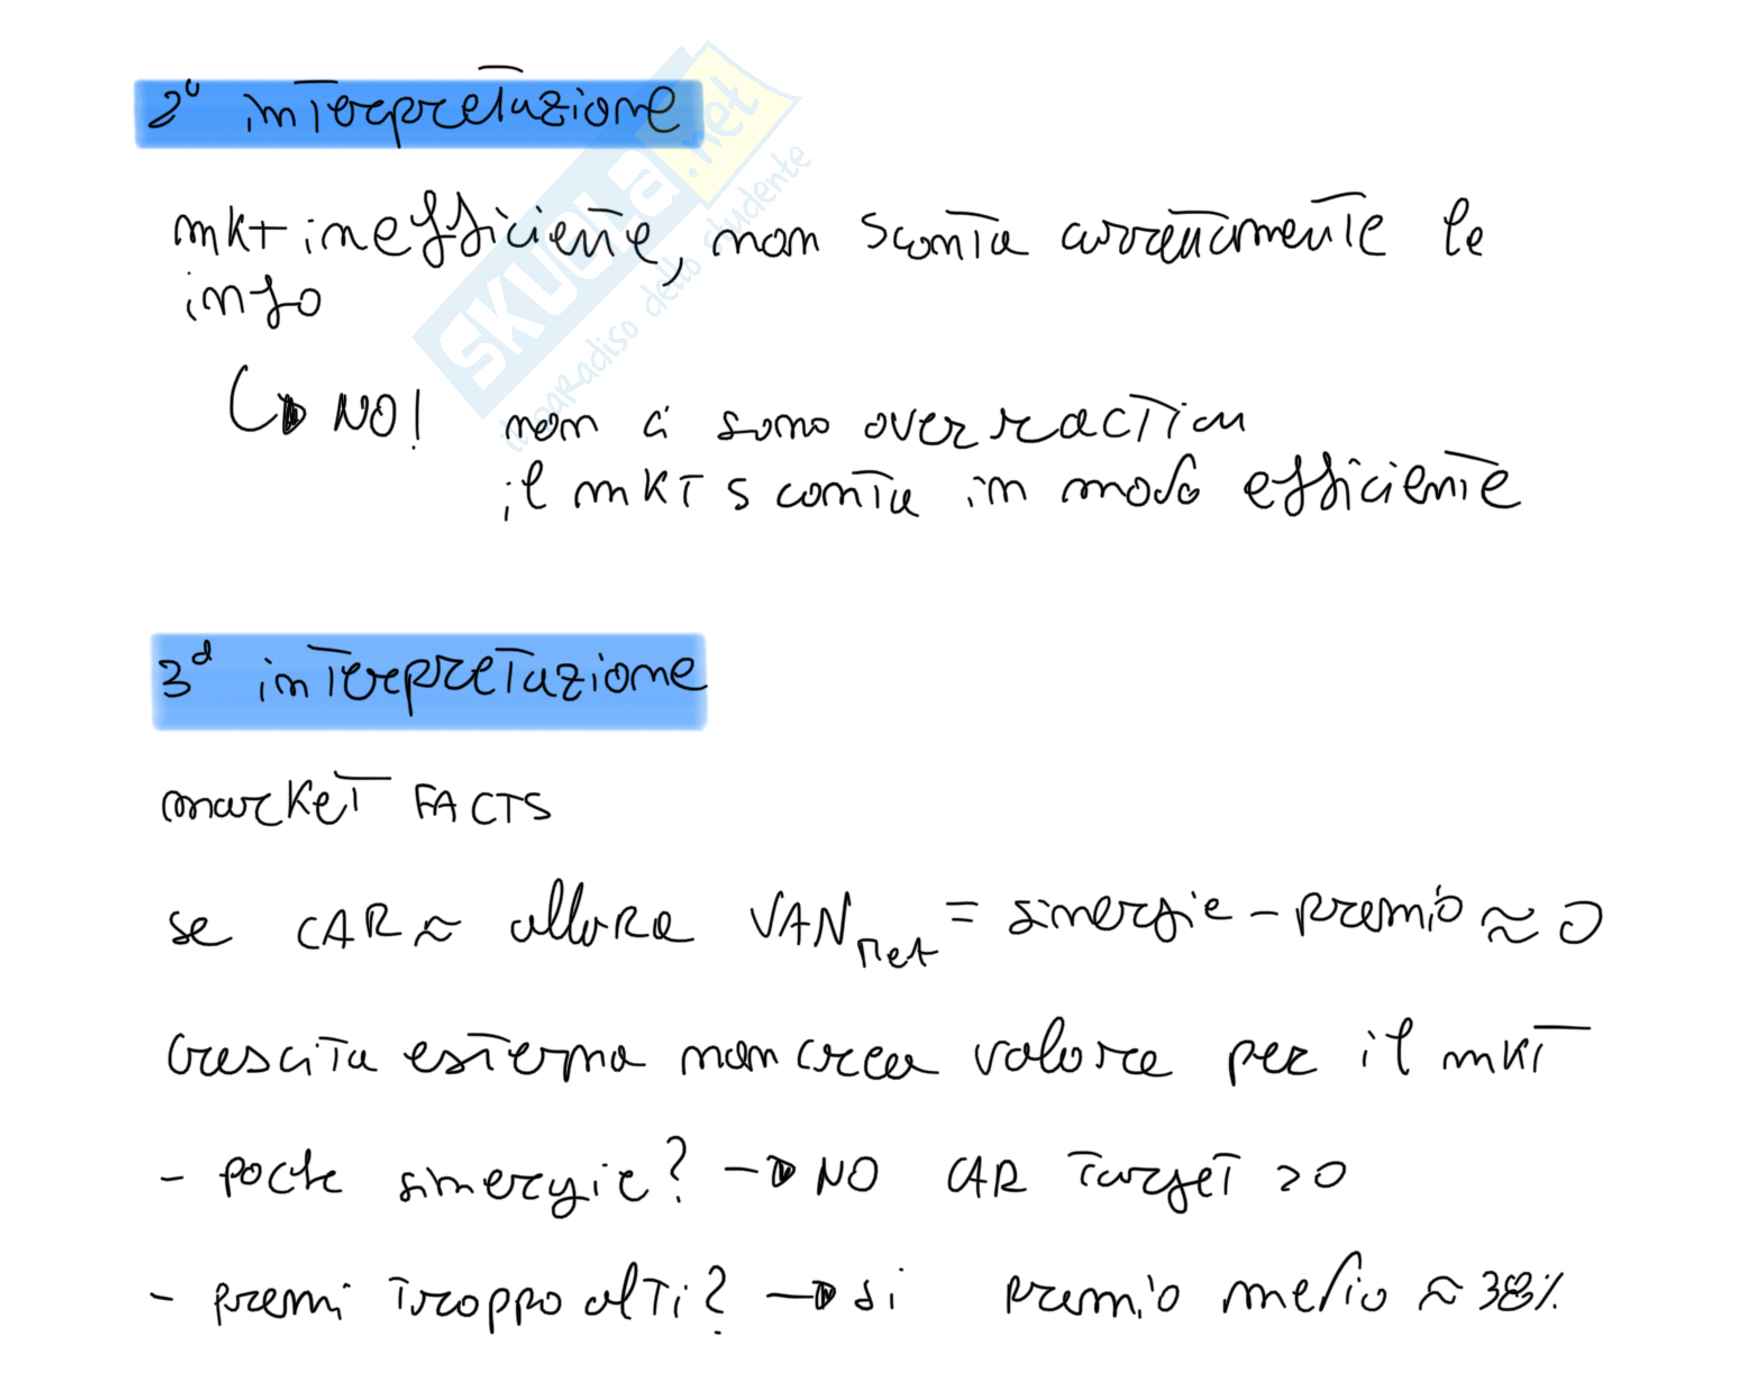 2a interpretazione
mkt inefficiente, non sconta correttamente le
info
NO! non ci sono overreaction
il mkt sconta in modo efficiente
3a interpretazione
market FACTS
se CAR ≈ allora VAN net = sinergie - premio ≈ 0
crescita esterna non crea valore per il mkt
- poche sinergie? → NO CAR Target > 0
- premi troppo alti? → si premio medio ≈ 38%
SKUOLA.net
il paradiso dello studente